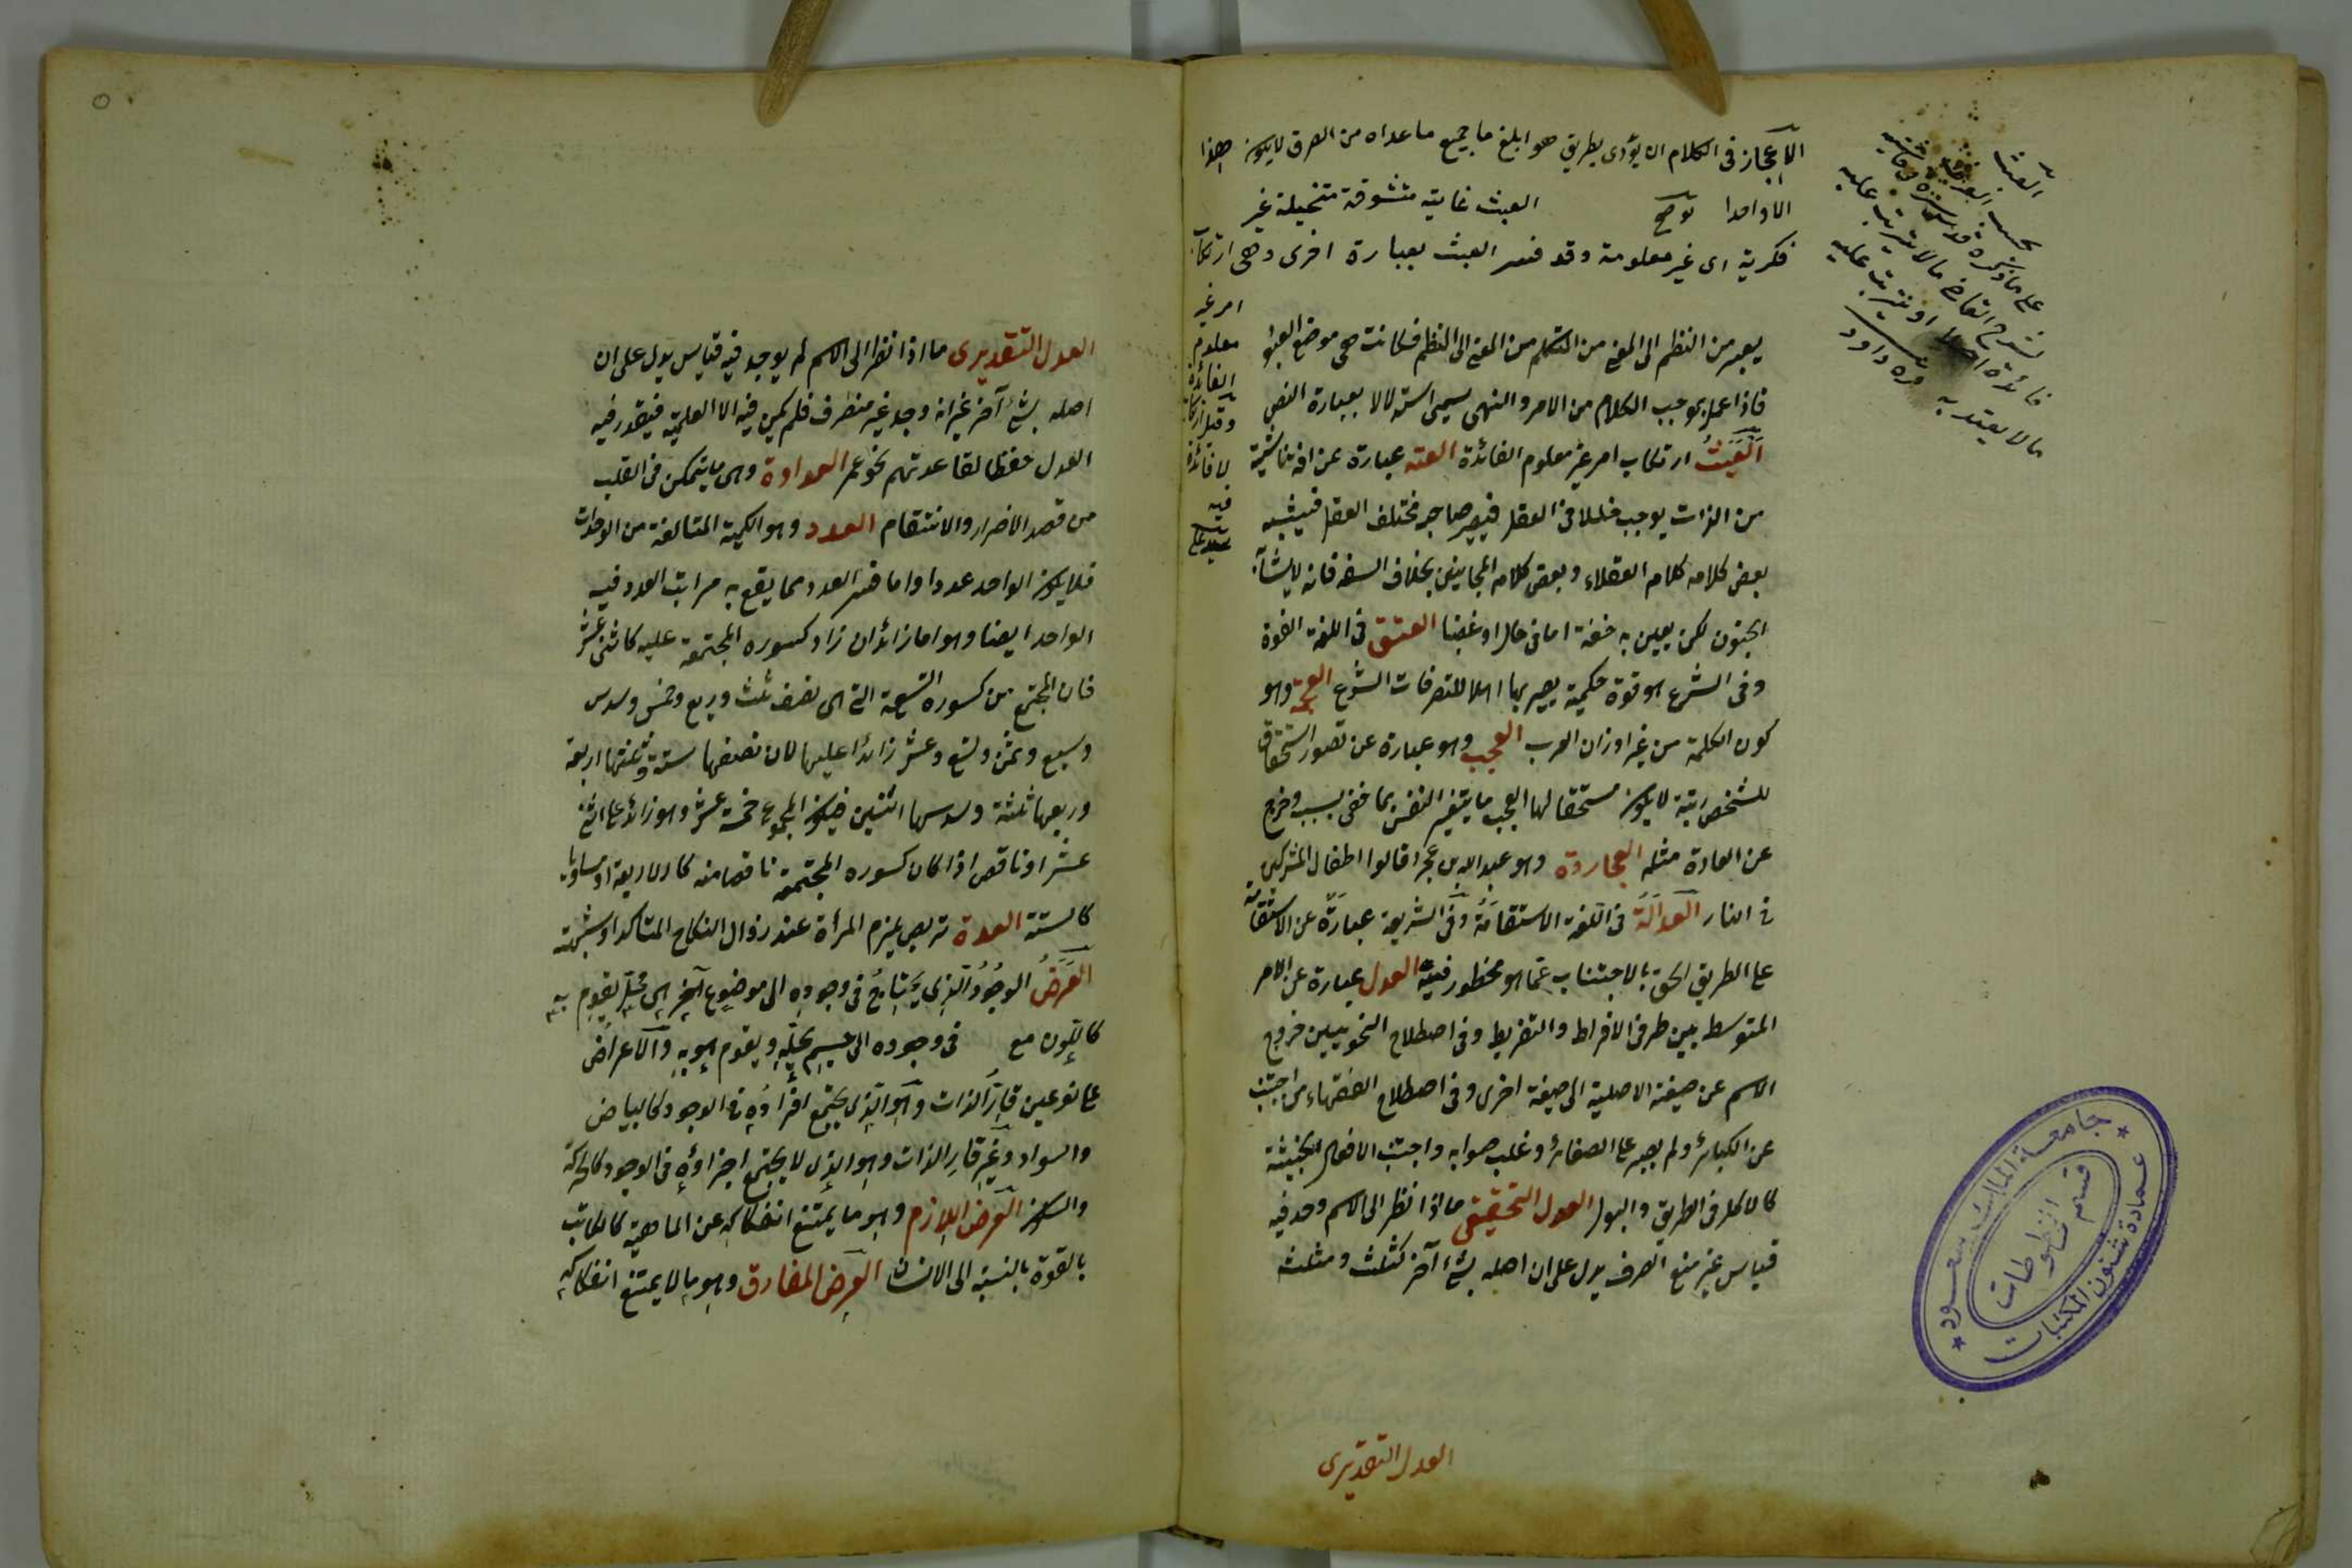 الاعجاز فى الكلام ان يؤدى بطريق هو ابلغ ما جميع ما عداه من الطرق لايكون هذا
الا واحدا توضيح العبث غاية متشوقة متخيلة غير
فكرية اى غير معلومة وقد فسر العبث بعبارة اخرى وهى ارتكاب
امر غير
معلوم
الفائدة
وقيل ارتكاب
لا فائدة
فيه
سيد على
العبث
بحسب العرف
على ما ذكره قدس سره فى حاشيته
شرح القاضى مالا يترتب عليه
فائدة اصلا او يترتب عليه
مالا يعتد به قره داود
يعبر من النظم الى المعنى من المتكلم من المعنى الى النظم فكانت هى موضع العبور
فاذا عمل بموجب الكلام من الامر والنهى يسمى استدلالا بعبارة النص
العبث ارتكاب امر غير معلوم الفائدة العته عبارة عن افة ناشئة
من الذات يوجب خللا فى العقل فيصير صاحبه مختلف العقل فيشبه
بعض كلامه كلام العقلاء وبعض كلامه المجانين بخلاف السفه فانه لايشابه
الجنون لكن يعين به خفة اما فى حاله او غضبا العتق فى اللغة القوة
وفى الشرع هو قوة حكمية يصير بها اهلا للتصرفات الشرع العجمة وهو
كون الكلمة من غير اوزان العرب العجب وهو عبارة عن تصور استحقاق
للشخص رتبة لايكون مستحقا لها العجب ما يتغير النفس بما خفى بسبب وخرج
عن العادة مثله العجاردة وهو عبد الله بن عجرد قالوا اطفال المشركين
فى النار العدالة فى اللغة الاستقامة وفى الشريعة عبارة عن الاستقامة
على الطريق الحق بالاجتناب عما هو محظور فيه العدل عبارة عن الامر
المتوسط بين طرفى الافراط والتفريط وفى اصطلاح النحويين خروج
الاسم عن صيغة الاصلية الى صيغة اخرى وفى اصطلاح الفقهاء من اجتنب
عن الكبائر ولم يصر على الصغائر وغلب صوابه واجتنب الافعال الخبيثة
كالاكل فى الطريق والبول العدل التحقيقى ما اذا نظر الى الاسم وجد فيه
قياس غير منع الصرف يدل على ان اصله شئ آخر كثلث ومثلث
العدل التقديرى
العدل التقديرى ما اذا نظر الى الاسم لم يوجد فيه قياس يدل على ان
اصله شئ آخر غير انه وجد غير منصرف فلم يكن فيه الا العلمية فيقدر فيه
العدل حفظا لقاعدتهم نحو عمر العداوة وهى ما يتمكن فى القلب
من قصد الاضرار والانتقام العدد وهو الكمية المتالفة من الوحدات
فلايكون الواحد عددا واما فسر العدد بما يقع به مراتب العدد فيه
الواحد ايضا وهو اما زائد ان زاد كسوره المجتمعة عليه كاثنى عشر
فان المجتمع من كسوره التسعة التى هى نصف ثلث وربع وخمس وسدس
وسبع وثمن وتسع وعشر زائدا عليها لان نصفها ستة وثلثها اربعة
وربعها ثلثة وسدسها اثنين فيكون المجموع خمسة عشر وهو زائد على اثنى
عشر او ناقص اذا كان كسوره المجتمعة ناقصا منه كالاربعة او مساويا
كالستة العدة تربص يلزم المرأة عند زوال النكاح المتاكد او شبهته
العرض الموجود الذى يحتاج فى وجوده الى موضوع آخر اى محل يقوم به
كاللون مع فى وجوده الى جسم يحله ويقوم هو به والاعراض
على نوعين قار الذات وهو الذى يجتمع افراده فى الوجود كالبياض
والسواد وغير قار الذات وهو الذى لا يجتمع اجزاؤه فى الوجود كالحركة
والسكون العرض اللازم وهو ما يمتنع انفكاكه عن الماهية كالكاتب
بالقوة بالنسبة الى الانسان العرض المفارق وهو ما لا يمتنع انفكاكه
جامعة الملك سعود
قسم المخطوطات
عمادة شئون المكتبات